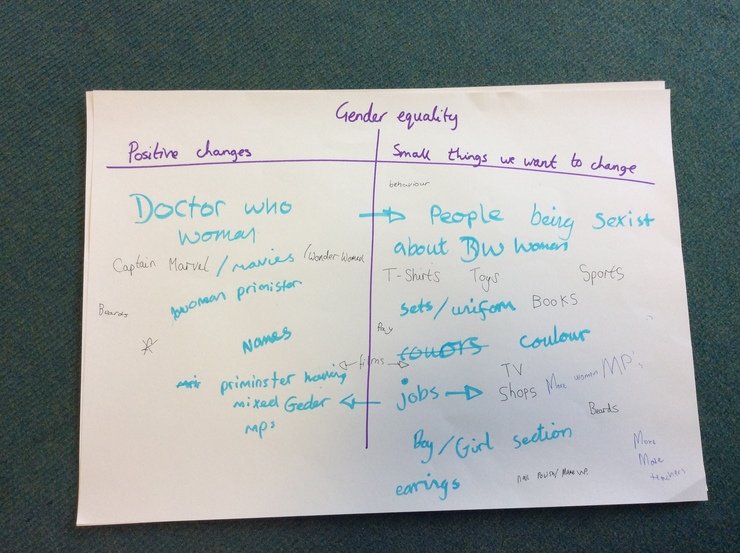 Gender equality
Positive changes
Doctor who
woman
Captain Marvel / movies / Wonder Woman
woman priminister
Beards
Names
priminster having
mixed Geder
MPs
films
Small things we want to change
behaviour
People being sexist
about DW woman
T-Shirts Toys Sports
sets/uniform BOOKS
Pay
couors coulour
TV
jobs Shops More women MP's
Beards
Boy/Girl section
More
Male
teachers
earings
nail polish/make up